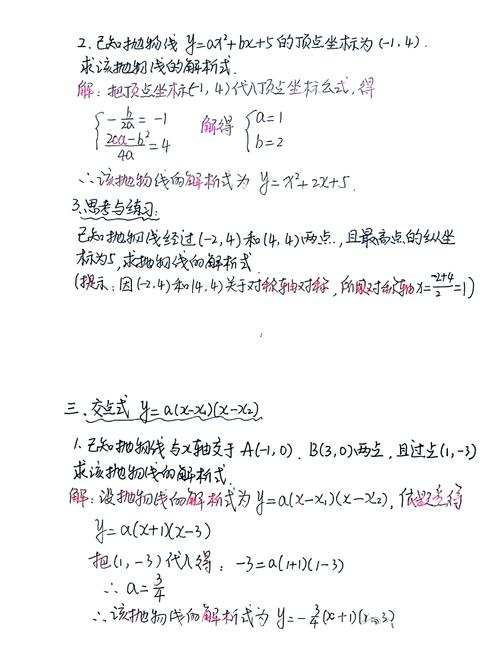 2. 已知抛物线 y=ax²+bx+5 的顶点坐标为 (-1, 4).
求该抛物线的解析式.
解: 把顶点坐标(-1, 4)代入顶点坐标公式, 得
{ -b/2a = -1 解得 { a=1
{ (20a-b²)/4a = 4 { b=2
∴该抛物线的解析式为 y=x²+2x+5.
3. 思考与练习:
已知抛物线经过(-2, 4)和(4, 4)两点, 且最高点的纵坐
标为5, 求抛物线的解析式.
(提示: 因(-2, 4)和(4, 4)关于对称轴对称, 所以对称轴x=(-2+4)/2=1)
三、交点式 y=a(x-x₁)(x-x₂)
1. 已知抛物线与x轴交于 A(-1, 0)、B(3, 0)两点, 且过点(1, -3)
求该抛物线的解析式.
解: 设抛物线的解析式为 y=a(x-x₁)(x-x₂), 依题意得
y=a(x+1)(x-3)
把(1, -3)代入得: -3=a(1+1)(1-3)
∴ a=3/4
∴该抛物线的解析式为 y=-3/4(x+1)(x-3)